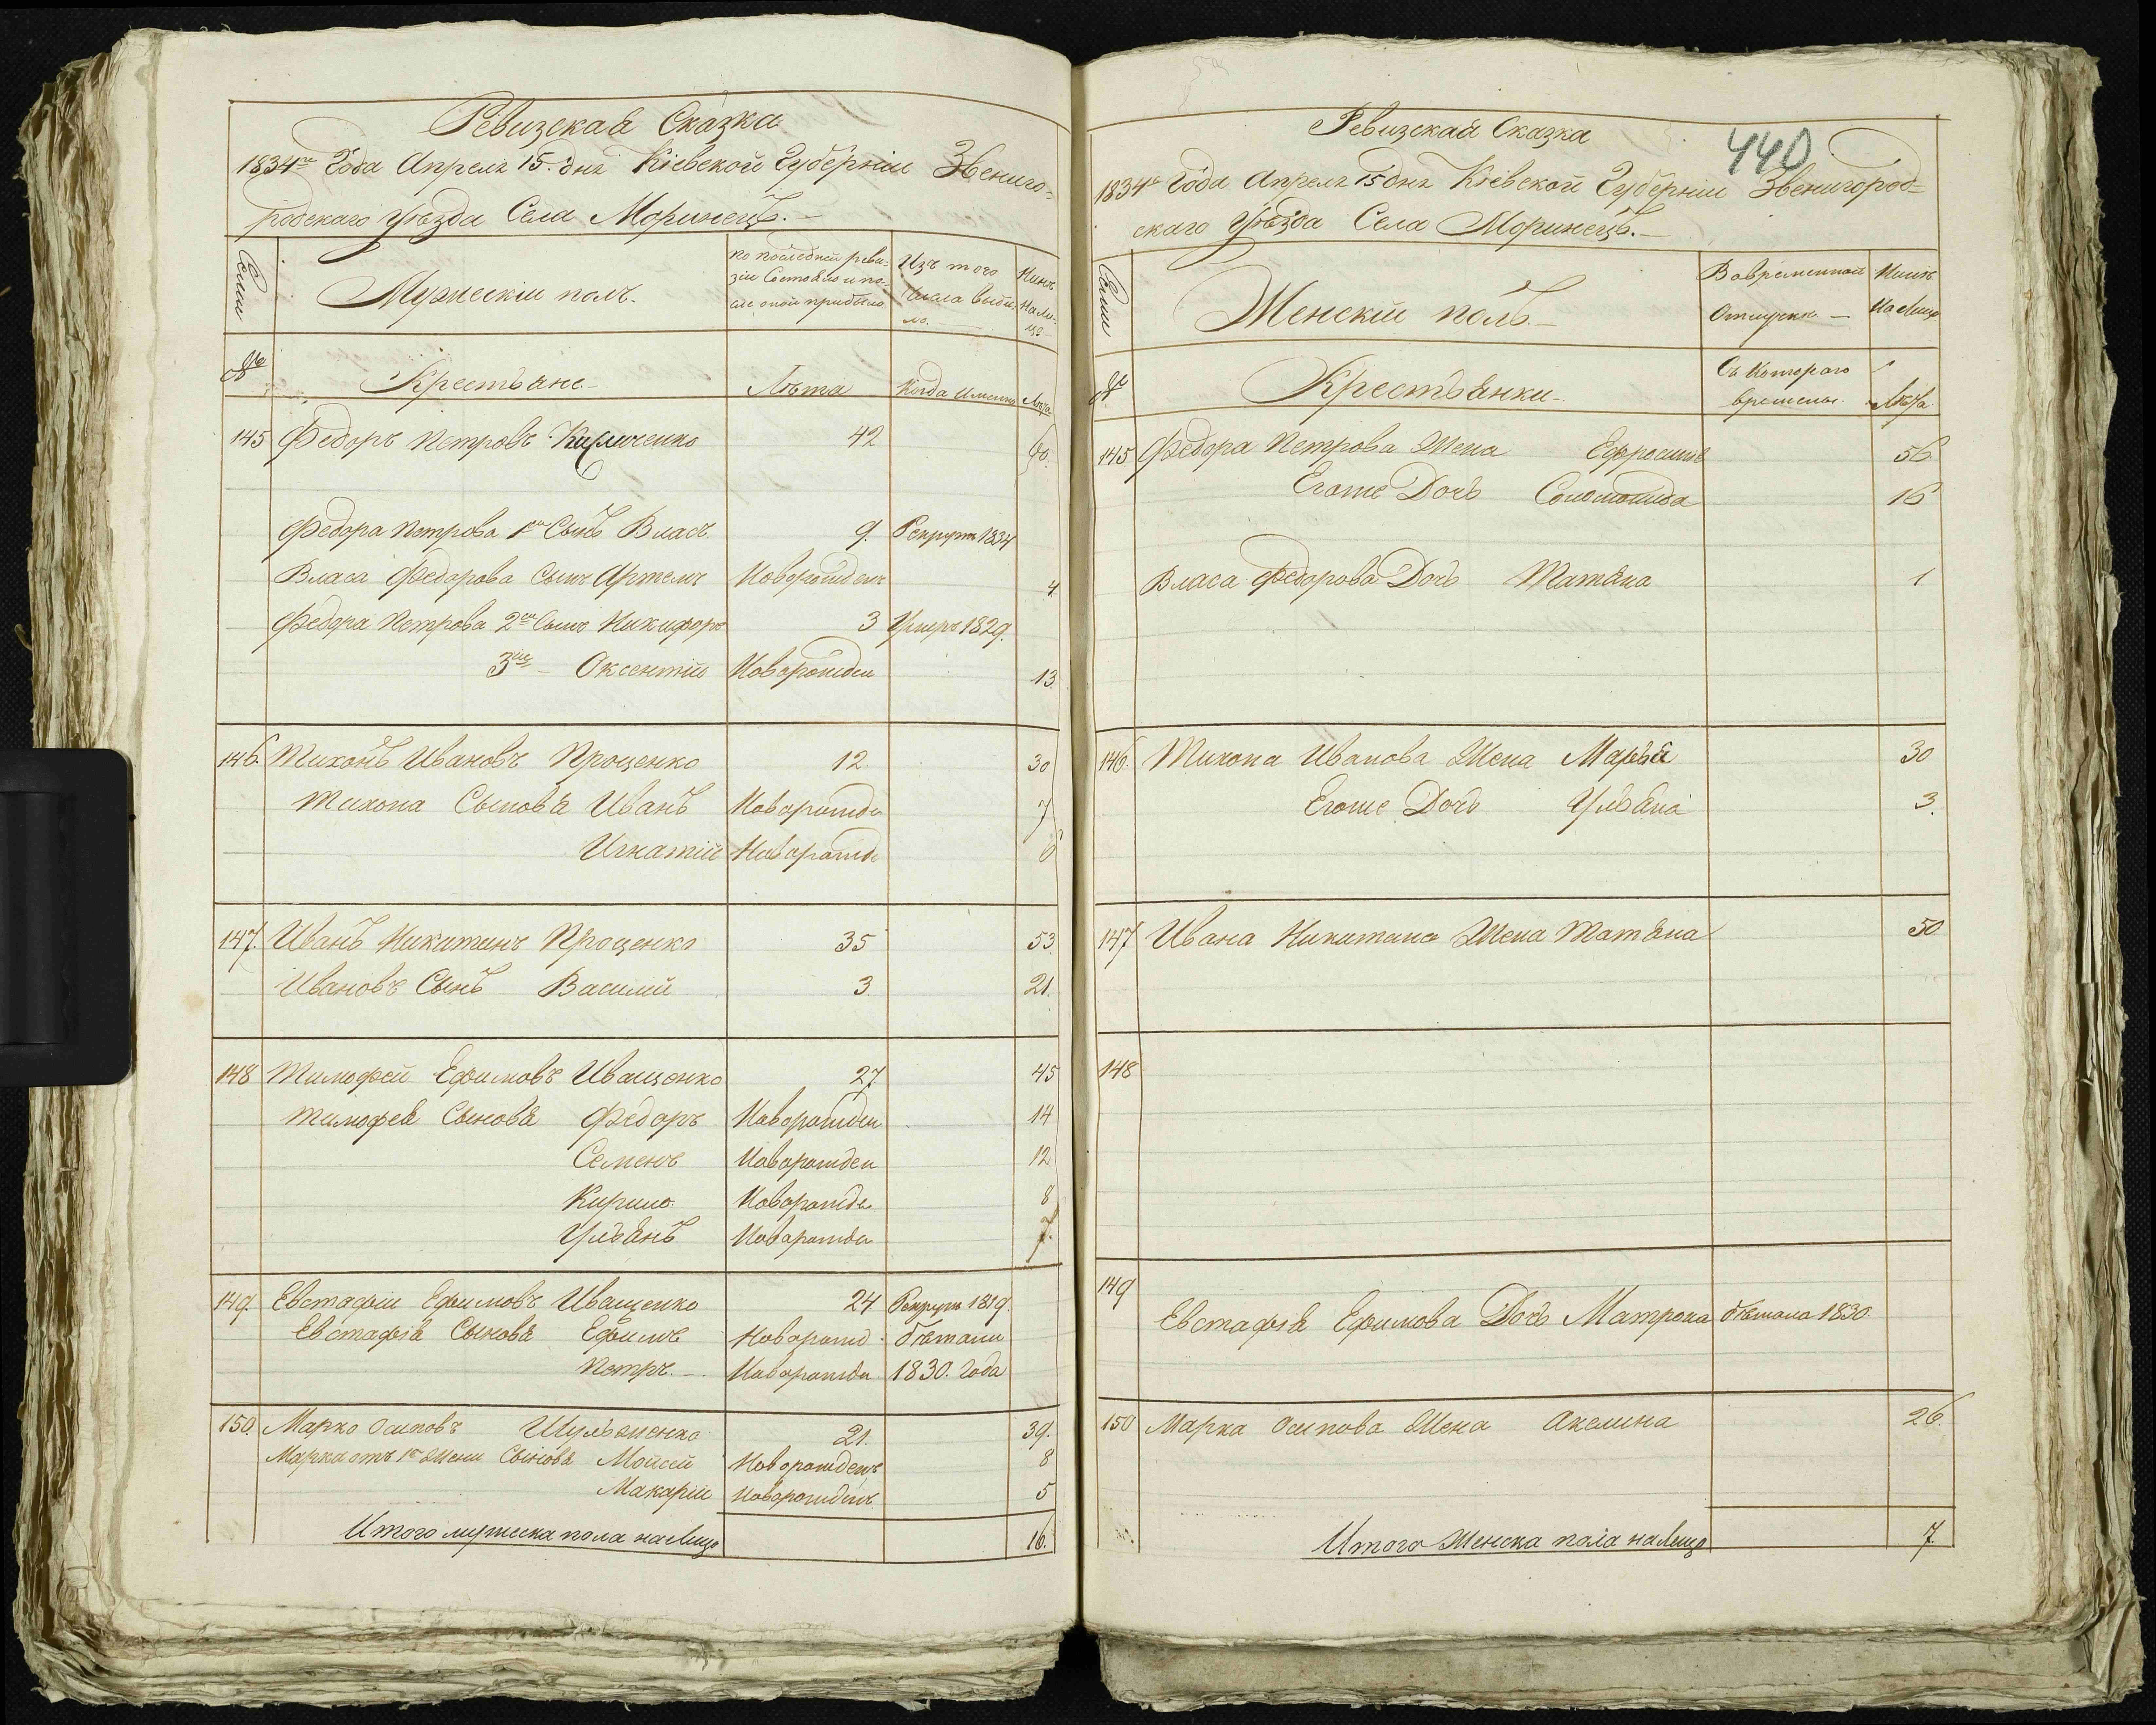 Ревизская Сказка
1834го Года Апреля 15. дня Кіевской Губерніи Звениго=
родскаго Уѣзда Села Моринецъ.
Семьи
Мужескій полъ.
по последней реви=
зіи Состояло и по=
сле оной прибыло
Изъ того
числа выбы=
ло.
Нынѣ
на ли=
цо
№
Крестьяне
Лѣта
Когда Именно
Лѣта
145 Федоръ Петровъ 42 60.
Федора Петрова 1й Сынъ Власъ 9. Рекрутъ 1834
Власа Федорова Сынъ Артемъ Новорожденъ 4.
Федора Петрова 2й Сынъ Никифоръ 3 Умеръ 1829.
3й Оксентій Новорожден 13.
146. Тихонъ Ивановъ Проценко 12. 30
Тихона Сыновья Иванъ Новорожде 7
Игнатій Новорожде
147. Иванъ Никитинъ Проценко 35 53.
Ивановъ Сынъ Василий 3. 21.
148 Тимофей Ефимовъ Иващенко 27 45
Тимофея Сыновья Федоръ Новорожден 14
Семенъ Новорожден 12
Кирило Новорожде 8
Ульянъ Новорожде 7.
149. Евстафій Ефимовъ Иващенко 24 Рекрутъ 1819.
Евстафія Сыновья Ефимъ Новорожд бѣжали
Петръ. Новорожде 1830. Года
150. Марко Осиповъ 21. 39.
Марка отъ 1й Жены Сыновья Мойсей Новорожденъ 8
Макарій Новорожденъ 5
Итого мужеска пола налицо 16.
440
Ревизская Сказка
1834го Года Апреля 15 дня Кіевской Губерніи Звенигород=
скаго Уѣзда Села Моринецъ.
Семьи
Женскій полъ.
Во временной
Отлучкѣ
Нынѣ
на Лицо
№
Крестьянки
Съ Котораго
времени.
Лѣта.
145 Федора Петрова Жена Ефросинія 56
Егоже Дочь Соломонида 16
Власа Федорова Дочь Татьяна 1
146. Тихона Иванова Жена Марья 30
Егоже Дочь Ульяна 3.
147 Ивана Никитина Жена Татьяна 50
148
149
Евстафія Ефимова Дочь Матрона бѣжала 1830.
150 Марка Осипова Жена Акелина 26.
Итого Женска пола налицо 7.